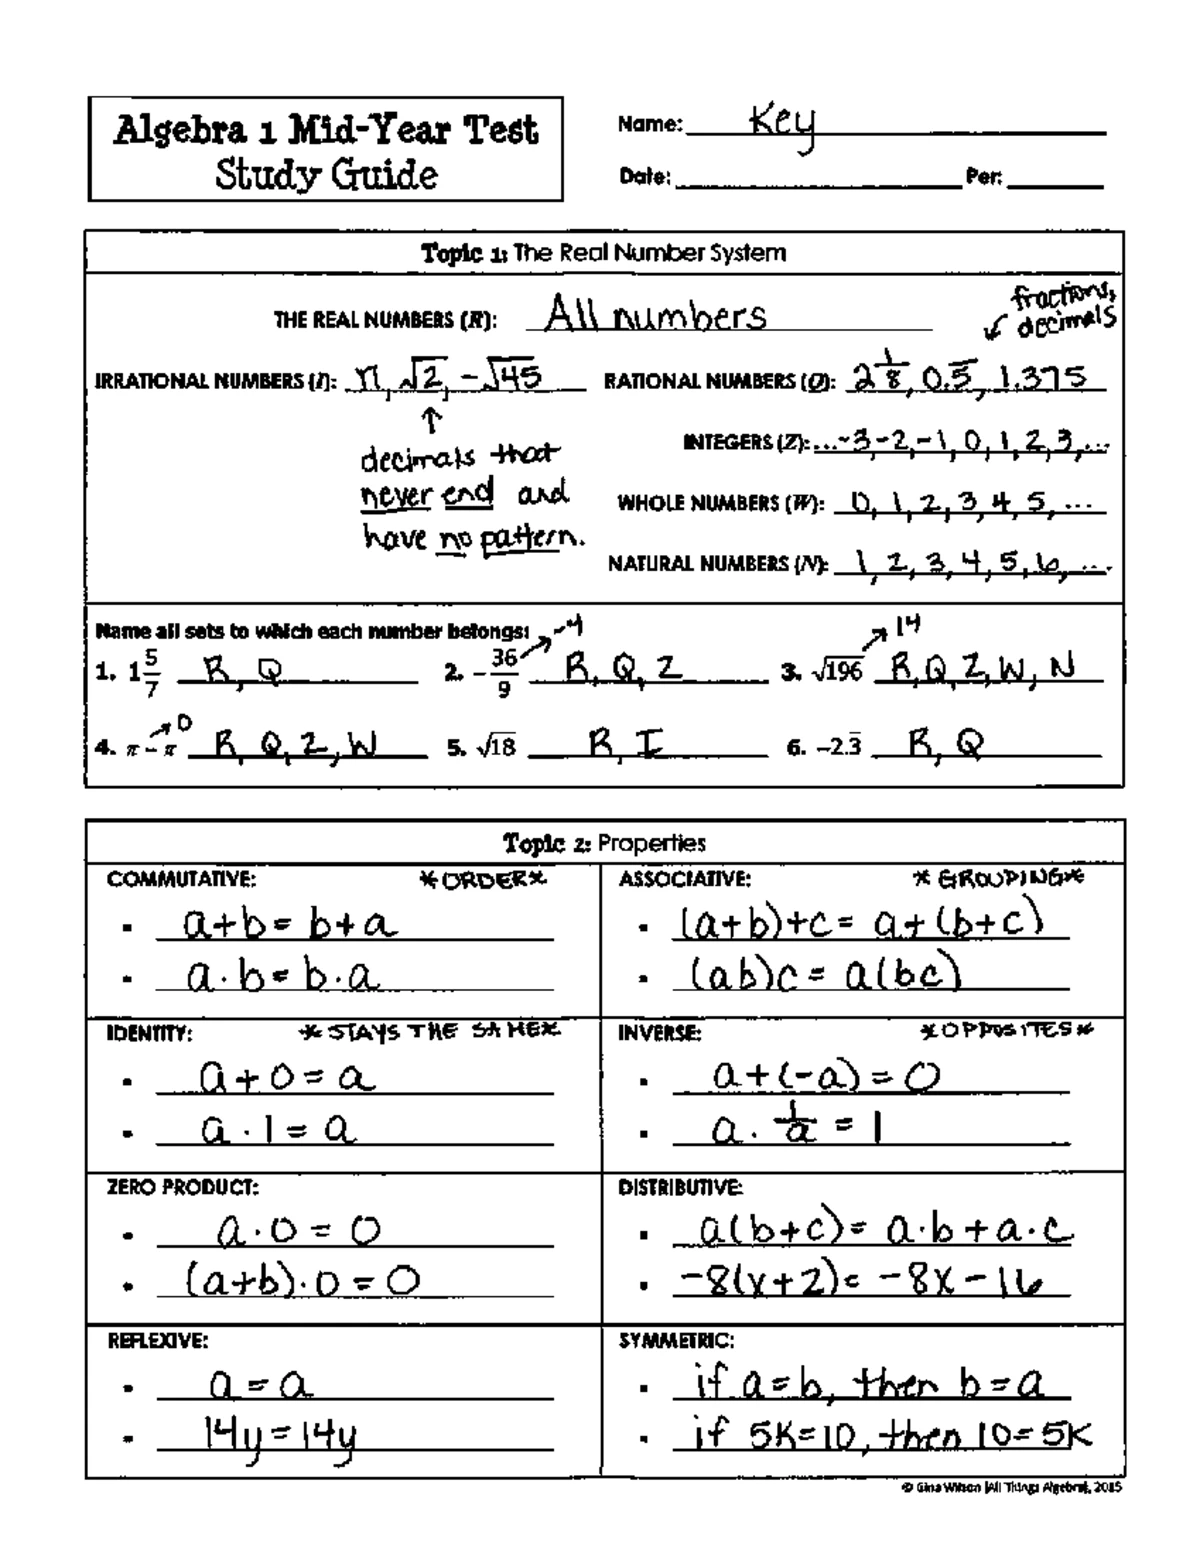 Algebra 1 Mid-Year Test
Study Guide
Name: Key
Date: Per:
Topic 1: The Real Number System
THE REAL NUMBERS (R): All numbers
fractions,
decimals
IRRATIONAL NUMBERS (I): π, √2, -√45
RATIONAL NUMBERS (Q): 2 1/8, 0.5̅, 1.375
decimals that
never end and
have no pattern.
INTEGERS (Z): ...-3-2,-1,0,1,2,3,...
WHOLE NUMBERS (W): 0, 1, 2, 3, 4, 5, ...
NATURAL NUMBERS (N): 1, 2, 3, 4, 5, 6, ...
Name all sets to which each number belongs:
1. 1 5/7 R, Q
2. -36/9 → -4 R, Q, Z
3. √196 → 14 R, Q, Z, W, N
4. π - π → 0 R, Q, Z, W
5. √18 R, I
6. -2.3̅ R, Q
Topic 2: Properties
COMMUTATIVE: *ORDER*
▪ a+b = b+a
▪ a·b = b·a
ASSOCIATIVE: *GROUPING*
▪ (a+b)+c = a+(b+c)
▪ (ab)c = a(bc)
IDENTITY: *STAYS THE SAME*
▪ a+0 = a
▪ a·1 = a
INVERSE: *OPPOSITES*
▪ a+(-a) = 0
▪ a·1/a = 1
ZERO PRODUCT:
▪ a·0 = 0
▪ (a+b)·0 = 0
DISTRIBUTIVE:
▪ a(b+c) = a·b + a·c
▪ -8(x+2) = -8x-16
REFLEXIVE:
▪ a = a
▪ 14y = 14y
SYMMETRIC:
▪ if a=b, then b=a
▪ if 5K=10, then 10=5K
© Gina Wilson (All Things Algebra), 2015